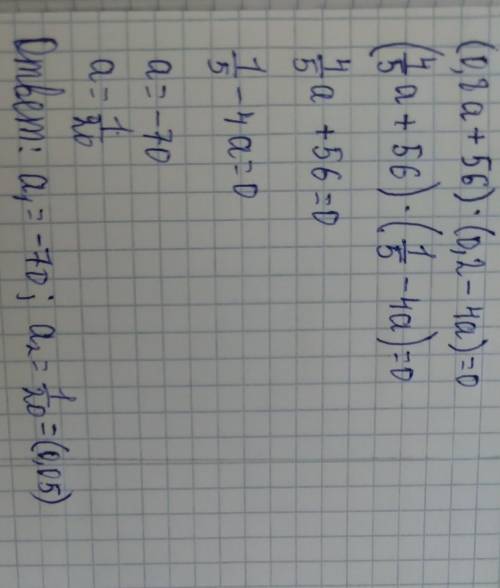 (0,8a + 56) · (0,2 - 4a) = 0
(4/5 a + 56) · (1/5 - 4a) = 0
4/5 a + 56 = 0
1/5 - 4a = 0
a = -70
a = 1/20
Ответ: a₁ = -70; a₂ = 1/20 = (0,05)